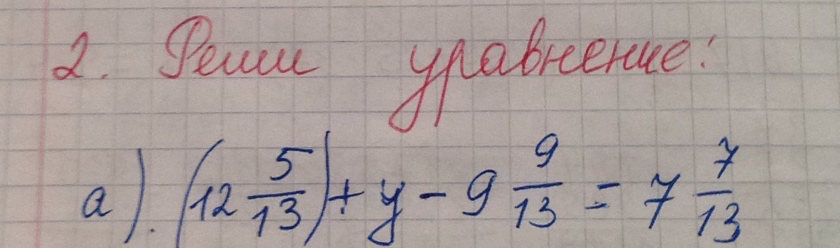 2. Реши уравнение:
а). (12 5/13) + у - 9 9/13 = 7 7/13